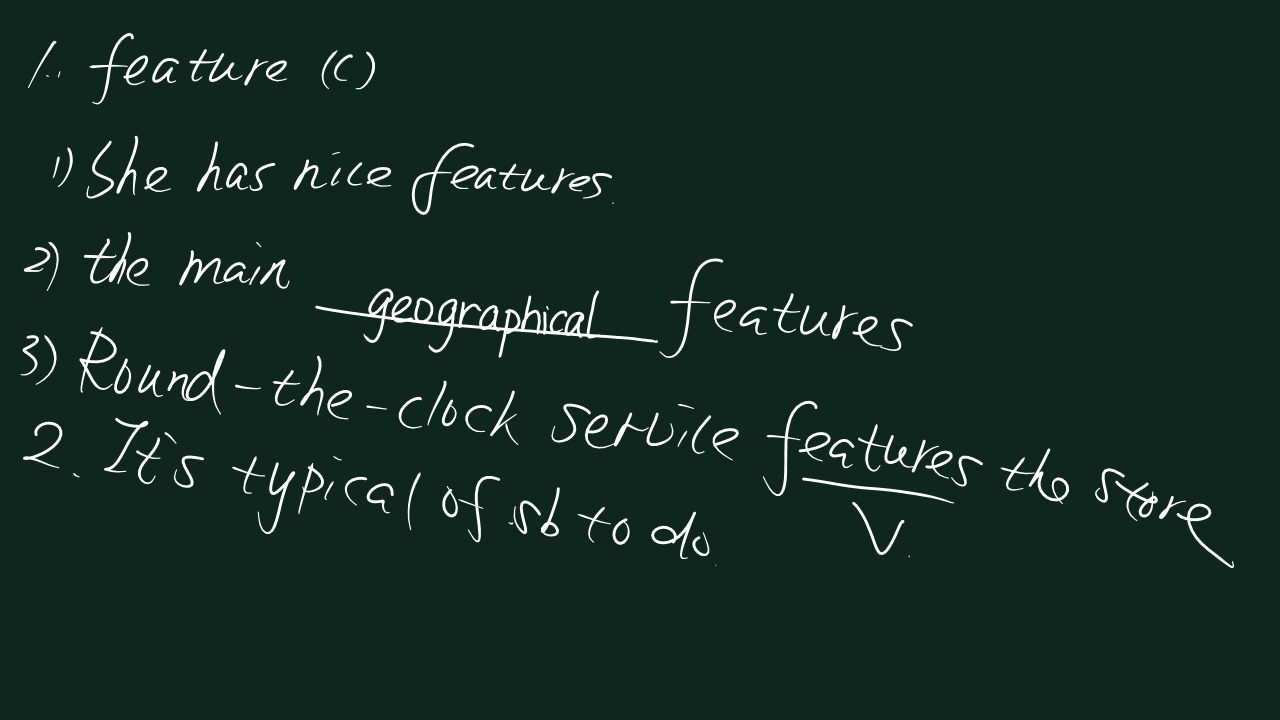 1. feature (C)
1) She has nice features.
2) the main geographical features
3) Round-the-clock service features the store
V.
2. It's typical of sb to do.